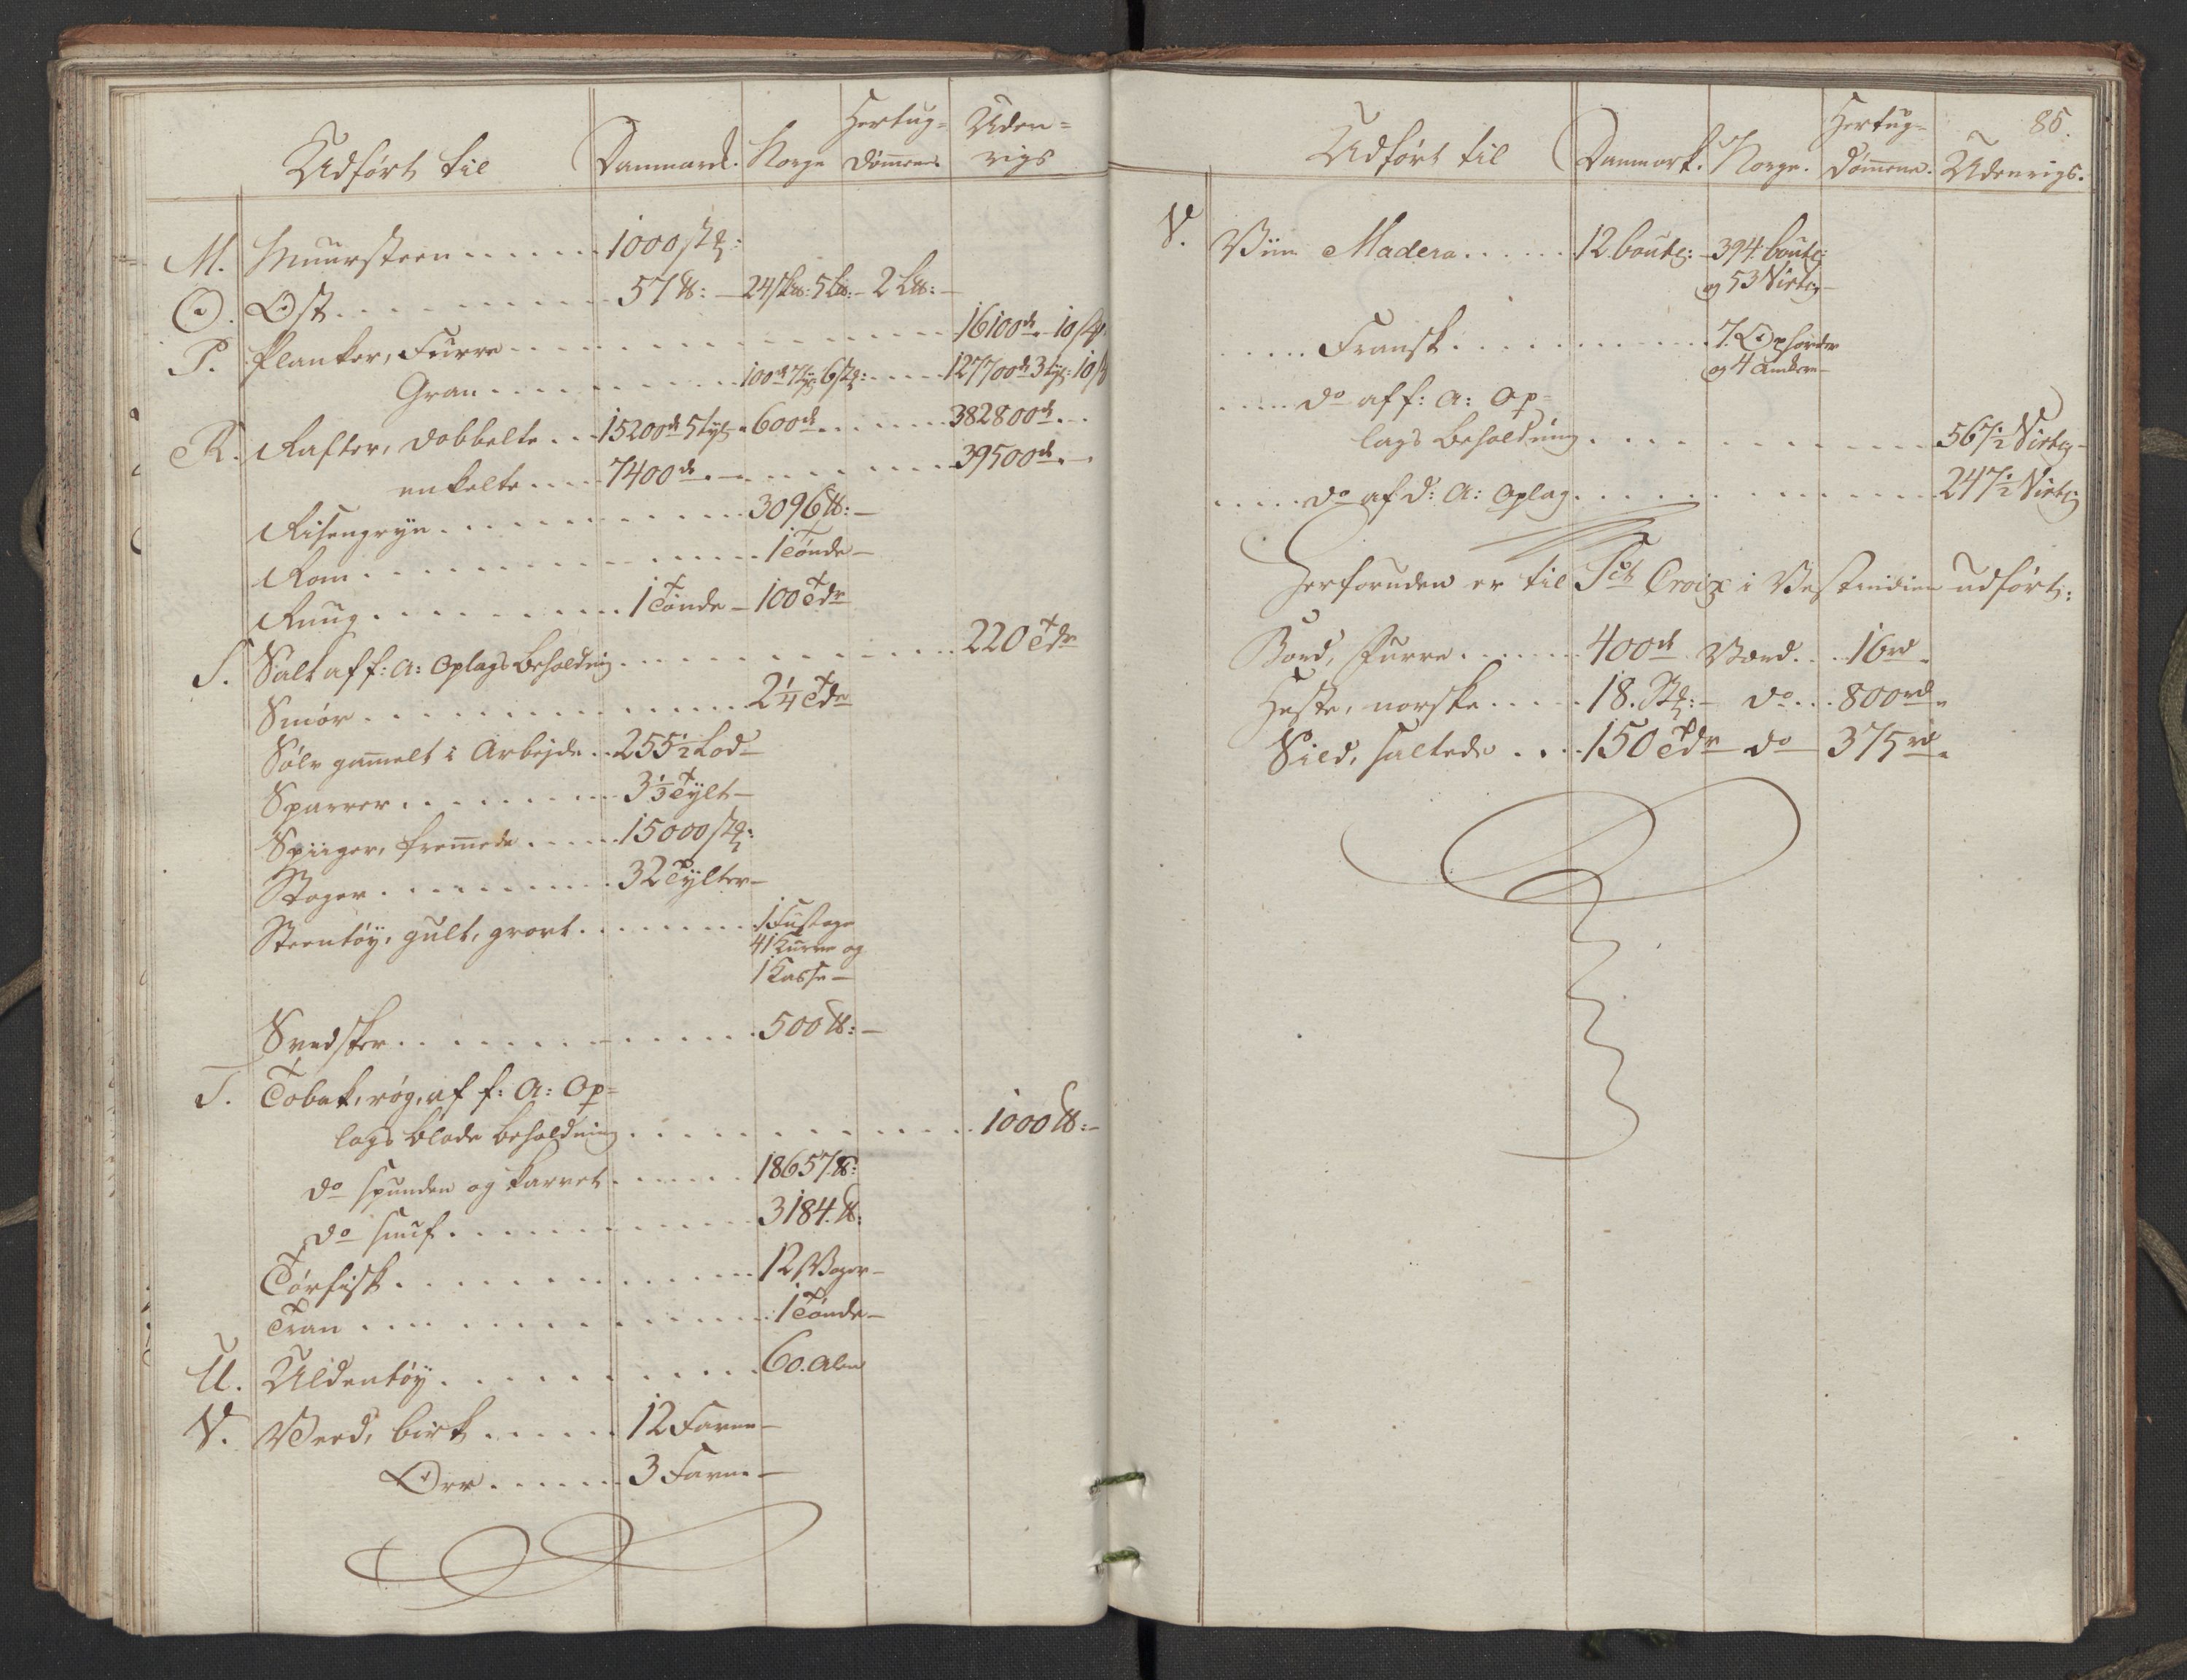 Udført til Danmark. Norge Hertug= dømmene Uden= rigs
M. Muursteen 1000 stk:
O. Ost 57 ℔: 24 Sk℔: 5 L℔: 2 L℔:
P. Planker, Furre 16100de 10 st
Gran 100de 7 tyl: 6 stk: 127700de 3 tyl: 10 st
R. Rafter, dobbelte 15200de 5 tyl 600de 382800de
enkelte 7400de 39500de
Risengryn 3096 ℔:
Rom 1 Tønde
Ruug 1 Tønde 100 Tdr
S. Salt af f: A: Oplags Beholdning 220 Tdr
Smør 2 1/4 Tdr
Sølv gam̅elt i Arbejde 255 1/2 Lod
Sparrer 3 1/3 Tylt
Spiiger, frem̅ede 15000 stk:
Stager 32 Tylter
Steentöy, gult, grovt 1 Fustage
41 Kurve og
1 Kasse
Svedsker 500 ℔:
T. Tobak, røg, af f: A: Op=
lags blade beholdning 1000 ℔:
do spunden og karvet 18657 ℔:
do snuf 3184 ℔:
Tørfisk 12 Woger
Tran 1 Tønde
U. Uldentöy 60. Alen
V. Veed, birk 12 Favne
Orr 3 Favne
85.
Udført til Danmark. Norge. Hertug= dømmene. Udenrigs.
V. Viin Madera 12 bouts: 394 bouts:
og 53 Virtl
Fransk 7 Oxhofder
og 4 Ankere
do af f: A: Op=
lags beholdning 567 1/2 Virtl
do af d: A: Oplag 247 1/2 Virtl
Herforuden er til Sct Croix i Vestindien udført:
Bord, Furre 400de Værd 16rd
Heste, norske 18. Stk: do 800rd
Sild, saltede 150 Tdr do 375rd